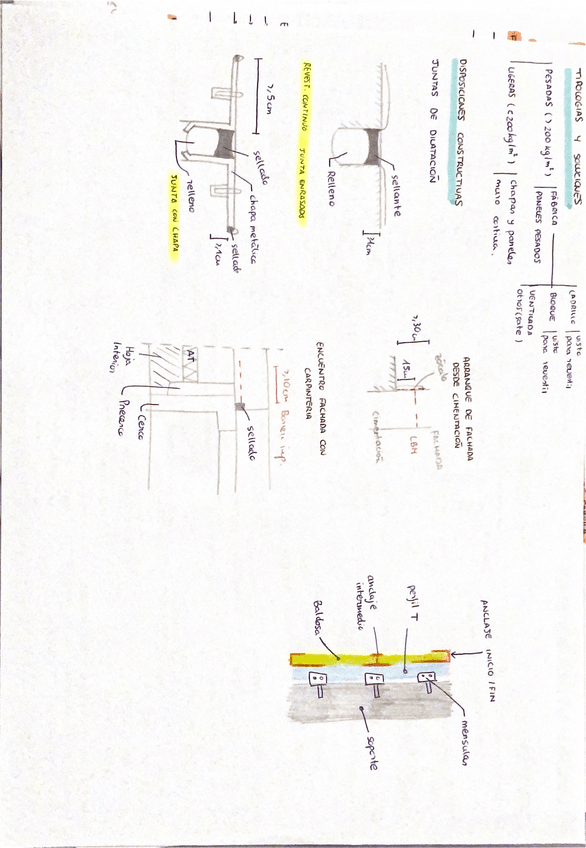 TIPOLOGÍAS Y SOLUCIONES
PESADAS (> 200 kg/m²)
FÁBRICA
LADRILLO
visto
para revestir
BLOQUE
visto
para revestir
PANELES PESADOS
VENTILADA
LIGERAS (<200kg/m²)
chapas y paneles
muro cortina.
DISPOSICIONES CONSTRUCTIVAS
JUNTAS DE DILATACIÓN
sellante
Relleno
REVEST. CONTINUO
JUNTA ENRASADA
>,5cm
sellado
chapa metálica
sellado
relleno
>,1cm
JUNTA CON CHAPA
ARRANQUE DE FACHADA
DESDE CIMENTACIÓN
>,30cm
15cm
zócalo
FACHADA
LBM
cimentación
ENCUENTRO FACHADA CON
CARPINTERÍA
>,10cm
Barrera imp.
sellado
AT
Hoja
Interior
Precerco
Cerco
ANCLAJE INICIO / FIN
ménsulas
perfil T
anclaje
intermedio
Baldosa
soporte